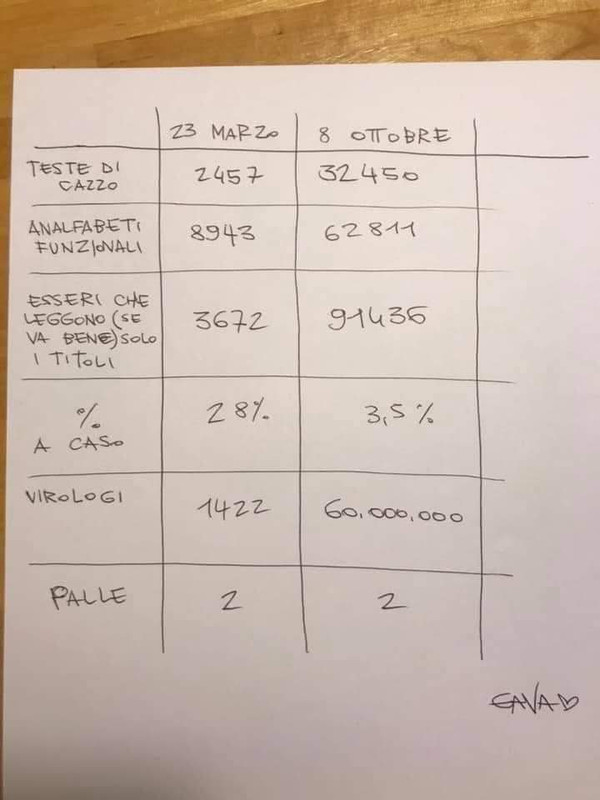 23 MARZO 8 OTTOBRE
TESTE DI
CAZZO 2457 32450
ANALFABETI
FUNZIONALI 8943 62811
ESSERI CHE
LEGGONO (SE
VA BENE) SOLO
I TITOLI 3672 91436
%
A CASO 28% 3,5%
VIROLOGI 1422 60.000.000
PALLE 2 2